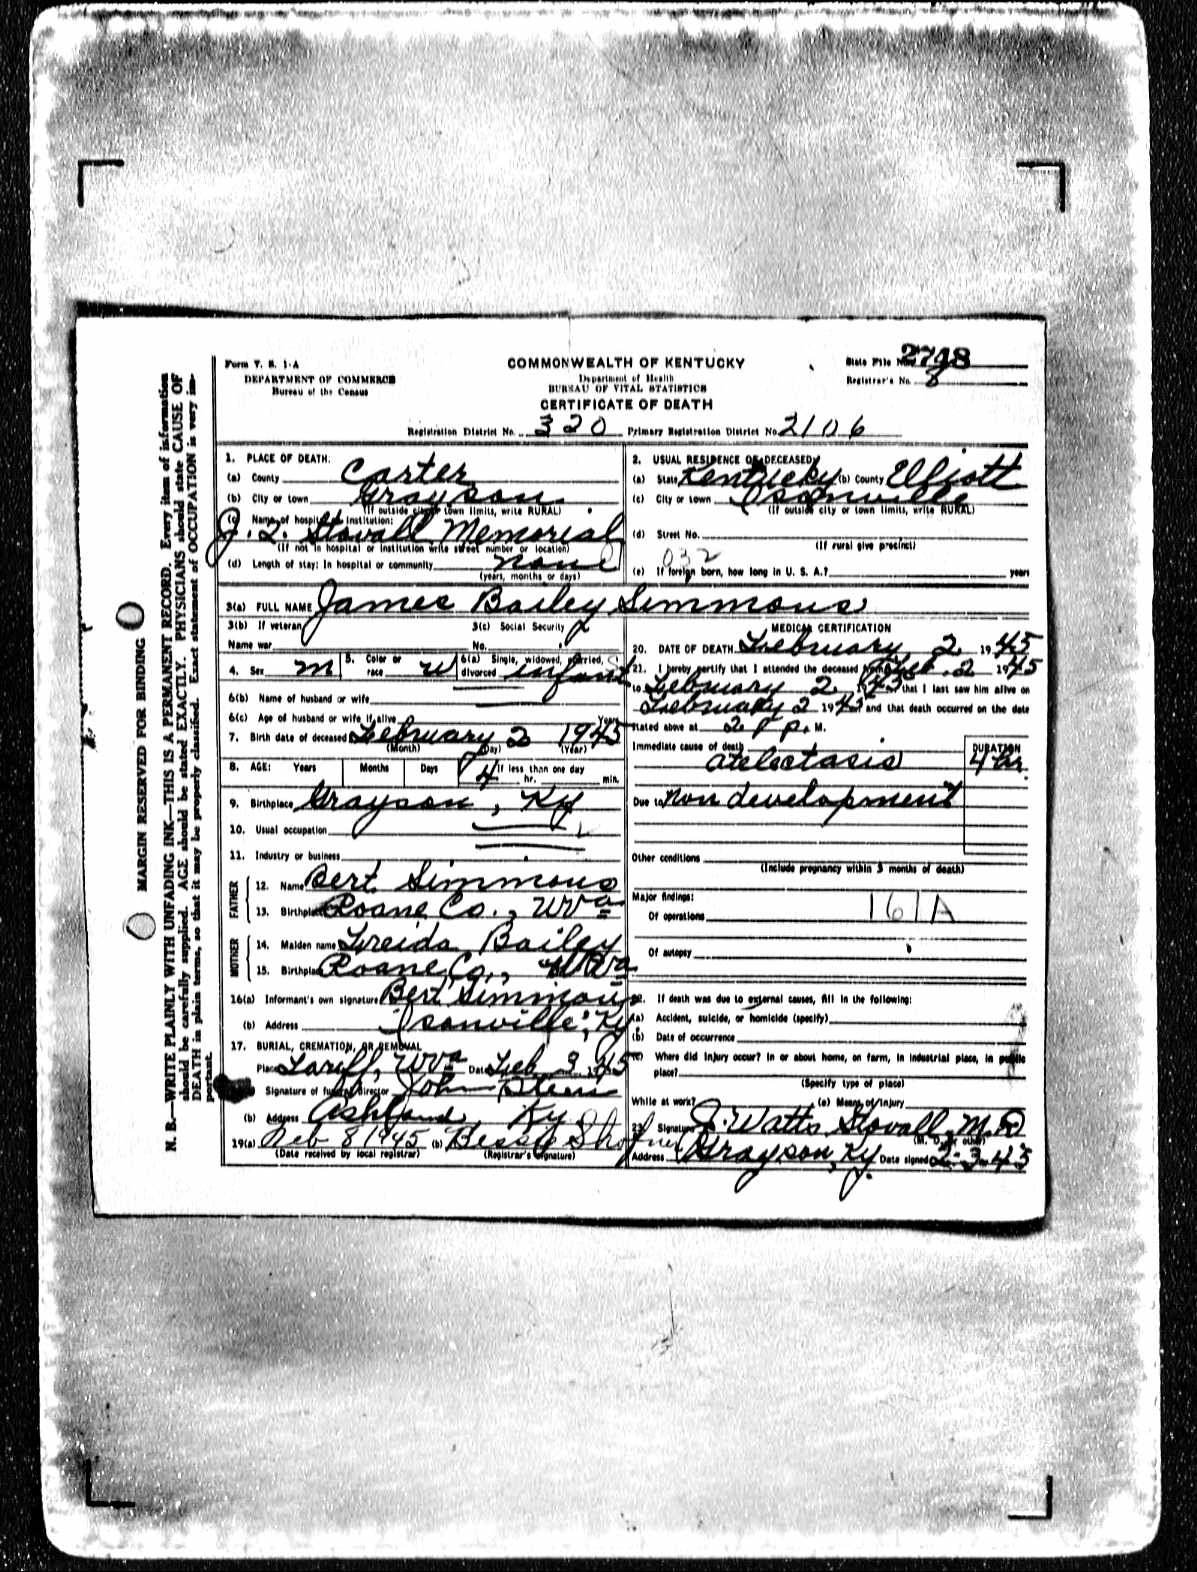 Form V. S. 1-A
DEPARTMENT OF COMMERCE
Bureau of the Census
COMMONWEALTH OF KENTUCKY
Department of Health
BUREAU OF VITAL STATISTICS
CERTIFICATE OF DEATH
State File No. 2748
Registrar's No. 8
Registration District No. 320 Primary Registration District No. 2106
MARGIN RESERVED FOR BINDING
N. B.—WRITE PLAINLY WITH UNFADING INK—THIS IS A PERMANENT RECORD. Every item of information
should be carefully supplied. AGE should be stated EXACTLY. PHYSICIANS should state CAUSE OF
DEATH in plain terms, so that it may be properly classified. Exact statement of OCCUPATION is very im-
portant.
1. PLACE OF DEATH:
(a) County Carter
(b) City or town Grayson
(If outside city or town limits, write RURAL)
(c) Name of hospital or institution:
J. Q. Stovall Memorial
(If not in hospital or institution write street number or location)
(d) Length of stay: In hospital or community none
(years, months or days)
2. USUAL RESIDENCE OF DECEASED:
(a) State Kentucky (b) County Elliott
(c) City or town Isonville
(If outside city or town limits, write RURAL)
(d) Street No.
(If rural give precinct)
032
(e) If foreign born, how long in U. S. A.? years
3(a) FULL NAME James Bailey Simmons
3(b) If veteran 3(c) Social Security
Name war No.
4. Sex m 5. Color or race w 6(a) Single, widowed, married, divorced infant
6(b) Name of husband or wife
6(c) Age of husband or wife if alive Years
7. Birth date of deceased February 2 1945
(Month) (Day) (Year)
8. AGE: Years Months Days If less than one day
4 hr. min.
9. Birthplace Grayson, Ky
10. Usual occupation
11. Industry or business
FATHER
12. Name Bert Simmons
13. Birthplace Roane Co., W Va
MOTHER
14. Maiden name Freida Bailey
15. Birthplace Roane Co., W Va
16(a) Informant's own signature Bert Simmons
(b) Address Isonville, Ky
17. BURIAL, CREMATION, OR REMOVAL
Place Tariff, W Va Date Feb 3, 1945
Signature of funeral director John Steen
(b) Address Ashland Ky
19(a) Feb 8 1945 (b) Bessie Shofner
(Date received by local registrar) (Registrar's signature)
MEDICAL CERTIFICATION
20. DATE OF DEATH February 2 1945
21. I hereby certify that I attended the deceased from Feb. 2 1945
to February 2 1945 that I last saw him alive on
February 2 1945 and that death occurred on the date
stated above at 2 P. M.
Immediate cause of death DURATION
atelectasis 4 hr
Due to Non development
Other conditions
(Include pregnancy within 3 months of death)
Major findings:
Of operations 161A
Of autopsy
22. If death was due to external causes, fill in the following:
(a) Accident, suicide, or homicide (specify)
(b) Date of occurrence
(c) Where did injury occur? In or about home, on farm, in industrial place, in public
place?
(Specify type of place)
While at work? (e) Means of injury
23. Signature J. Watts Stovall, M.D
(M. D. or other)
Address Grayson, Ky. Date signed 2-3-45